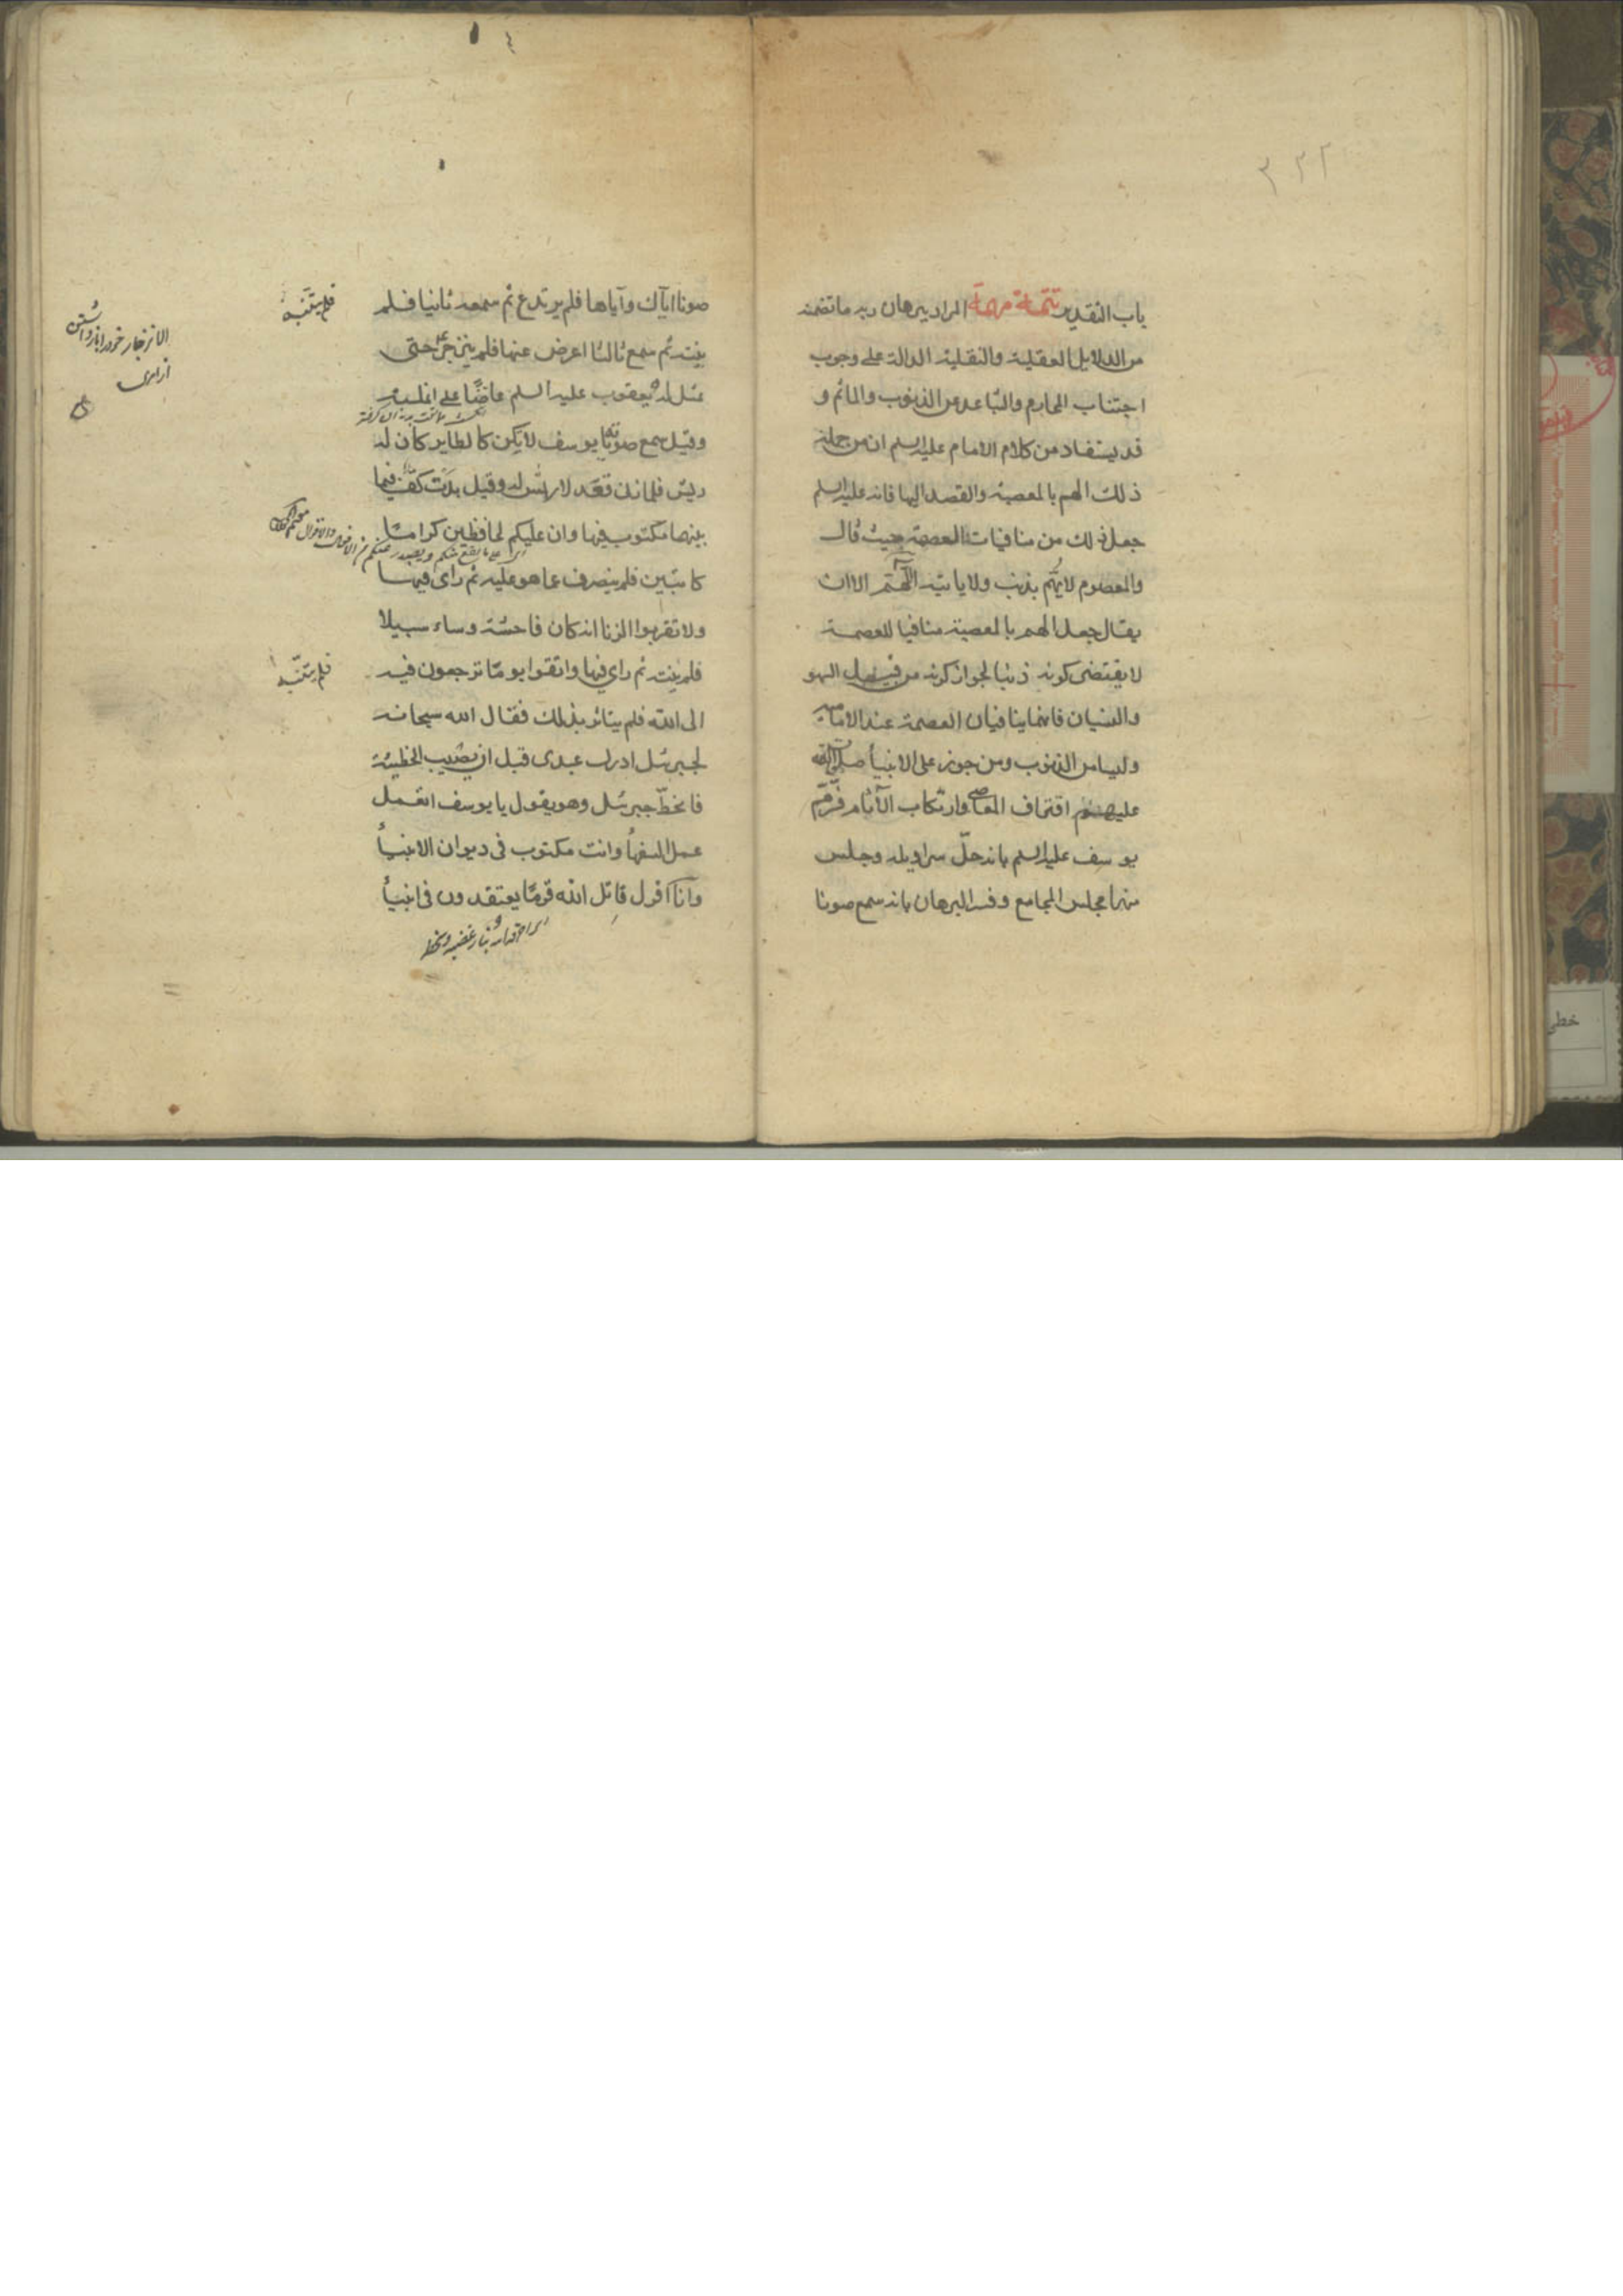 ٣٢٢
باب التقدير تتمة مهمة المراد ببرهان ربه ما تضمنه
من الدلايل العقلية والنقلية الدالة على وجوب
اجتناب المحارم والتباعد عن الذنوب والمآثم و
قد يستفاد من كلام الامام عليه السلم ان من جملة
ذلك الهم بالمعصية والقصد اليها فانه عليه السلم
جعل ذلك من منافيات العصمة حيث قال
والمعصوم لا يهم بذنب ولا ياتيه اللهم الا ان
يقال جعل الهم بالمعصية منافيا للعصمة
لا يقتضى كونه ذنبا لجواز كونه من قبيل السهو
والنسيان فانهما ينافيان العصمة عند الامامية
وليسا من الذنوب ومن جوز على الانبيأ صلوات الله
عليهم اقتراف المعاصى وارتكاب الآثام فسر هم
يوسف عليه السلم بانه حل سراويله وجلس
منها مجلس المجامع وفسر البرهان بانه سمع صوتا
صوتا اياك واياها فلم يرتدع ثم سمعه ثانيا فلم
ينته ثم سمع ثالثا اعرض عنها فلم ينزجر حتى
مثل له يعقوب عليه السلم عاضًا على انملته
وقيل سمع صوتا يا يوسف لا تكن كالطاير كان له
ريش فلما زنى قعد لا ريش له وقيل بدت كف فيما
بينهما مكتوب فيها وان عليكم لحافظين كراما
كاتبين فلم ينصرف عما هو عليه ثم راى فيها
ولا تقربوا الزنا انه كان فاحشة وساء سبيلا
فلم ينته ثم راى فيها واتقوا يوما ترجعون فيه
الى الله فلم يتاثر بذلك فقال الله سبحانه
لجبرئيل ادرك عبدى قبل ان يصيب الخطيئة
فانحط جبرئيل وهو يقول يا يوسف اتعمل
عمل السفهأ وانت مكتوب فى ديوان الانبيأ
وانا اقول قاتل الله قومًا يعتقدون فى انبيأ
فلم يتنبه
الانزجار خود را باز داشتن
از امرى
فلم يتنبه
خطى